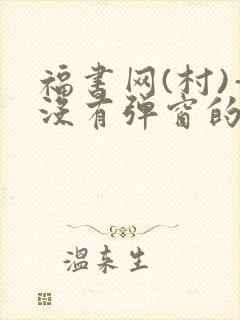 福书网(村)-
没有弹窗的
温来生